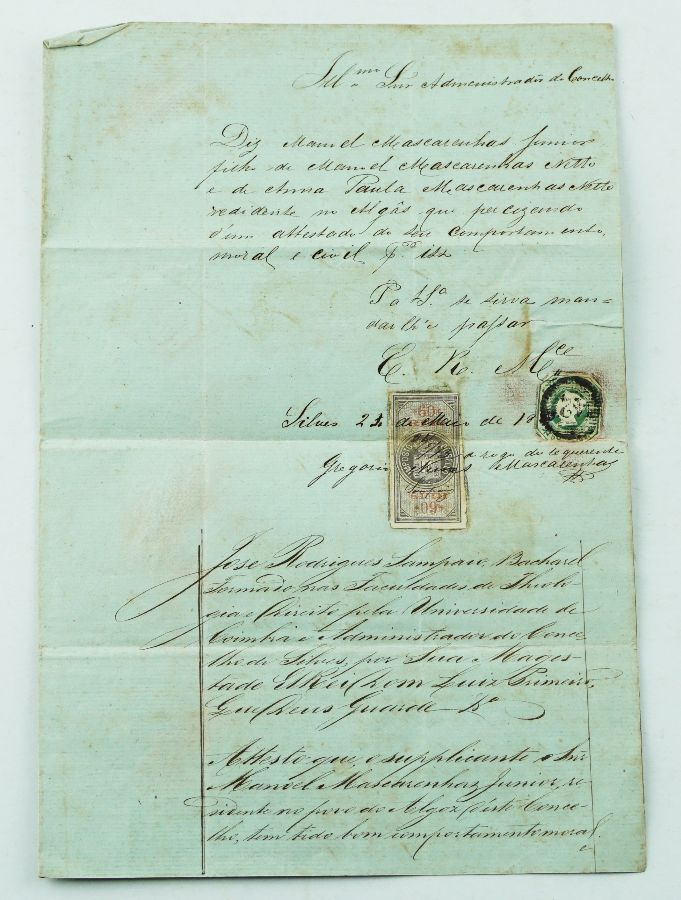 Ill.mo Snr Administrador do Concelho
Diz Manoel Mascarenhas Junior
filho de Manoel Mascarenhas Netto
e de Anna Paula Mascarenhas Netto
redidente no Algôs que percizando
d'um attestado do seu comportamento,
moral e civil p.r isso
P a V.Sa se sirva man=
dar lh'e passar
E. R. Mce
Silves 23 de Maio de 18
60
a rogo do requerente
Gregorio Mascarenhas
60
José Rodrigues Sampaio, Bacharel
Formado nas Faculdades de Theolo-
gia e Direito pela Universidade de
Coimbra e Administrador do Conce-
lho de Silves, por Sua Mages-
tade ElRei Dom Luiz Primeiro,
que Deus Guarde
Attesto que, o supplicante o Snr
Manoel Mascarenhas Junior, re-
sidente no povo do Algoz d'este Conce-
lho, tem tido bom comportamento moral
e